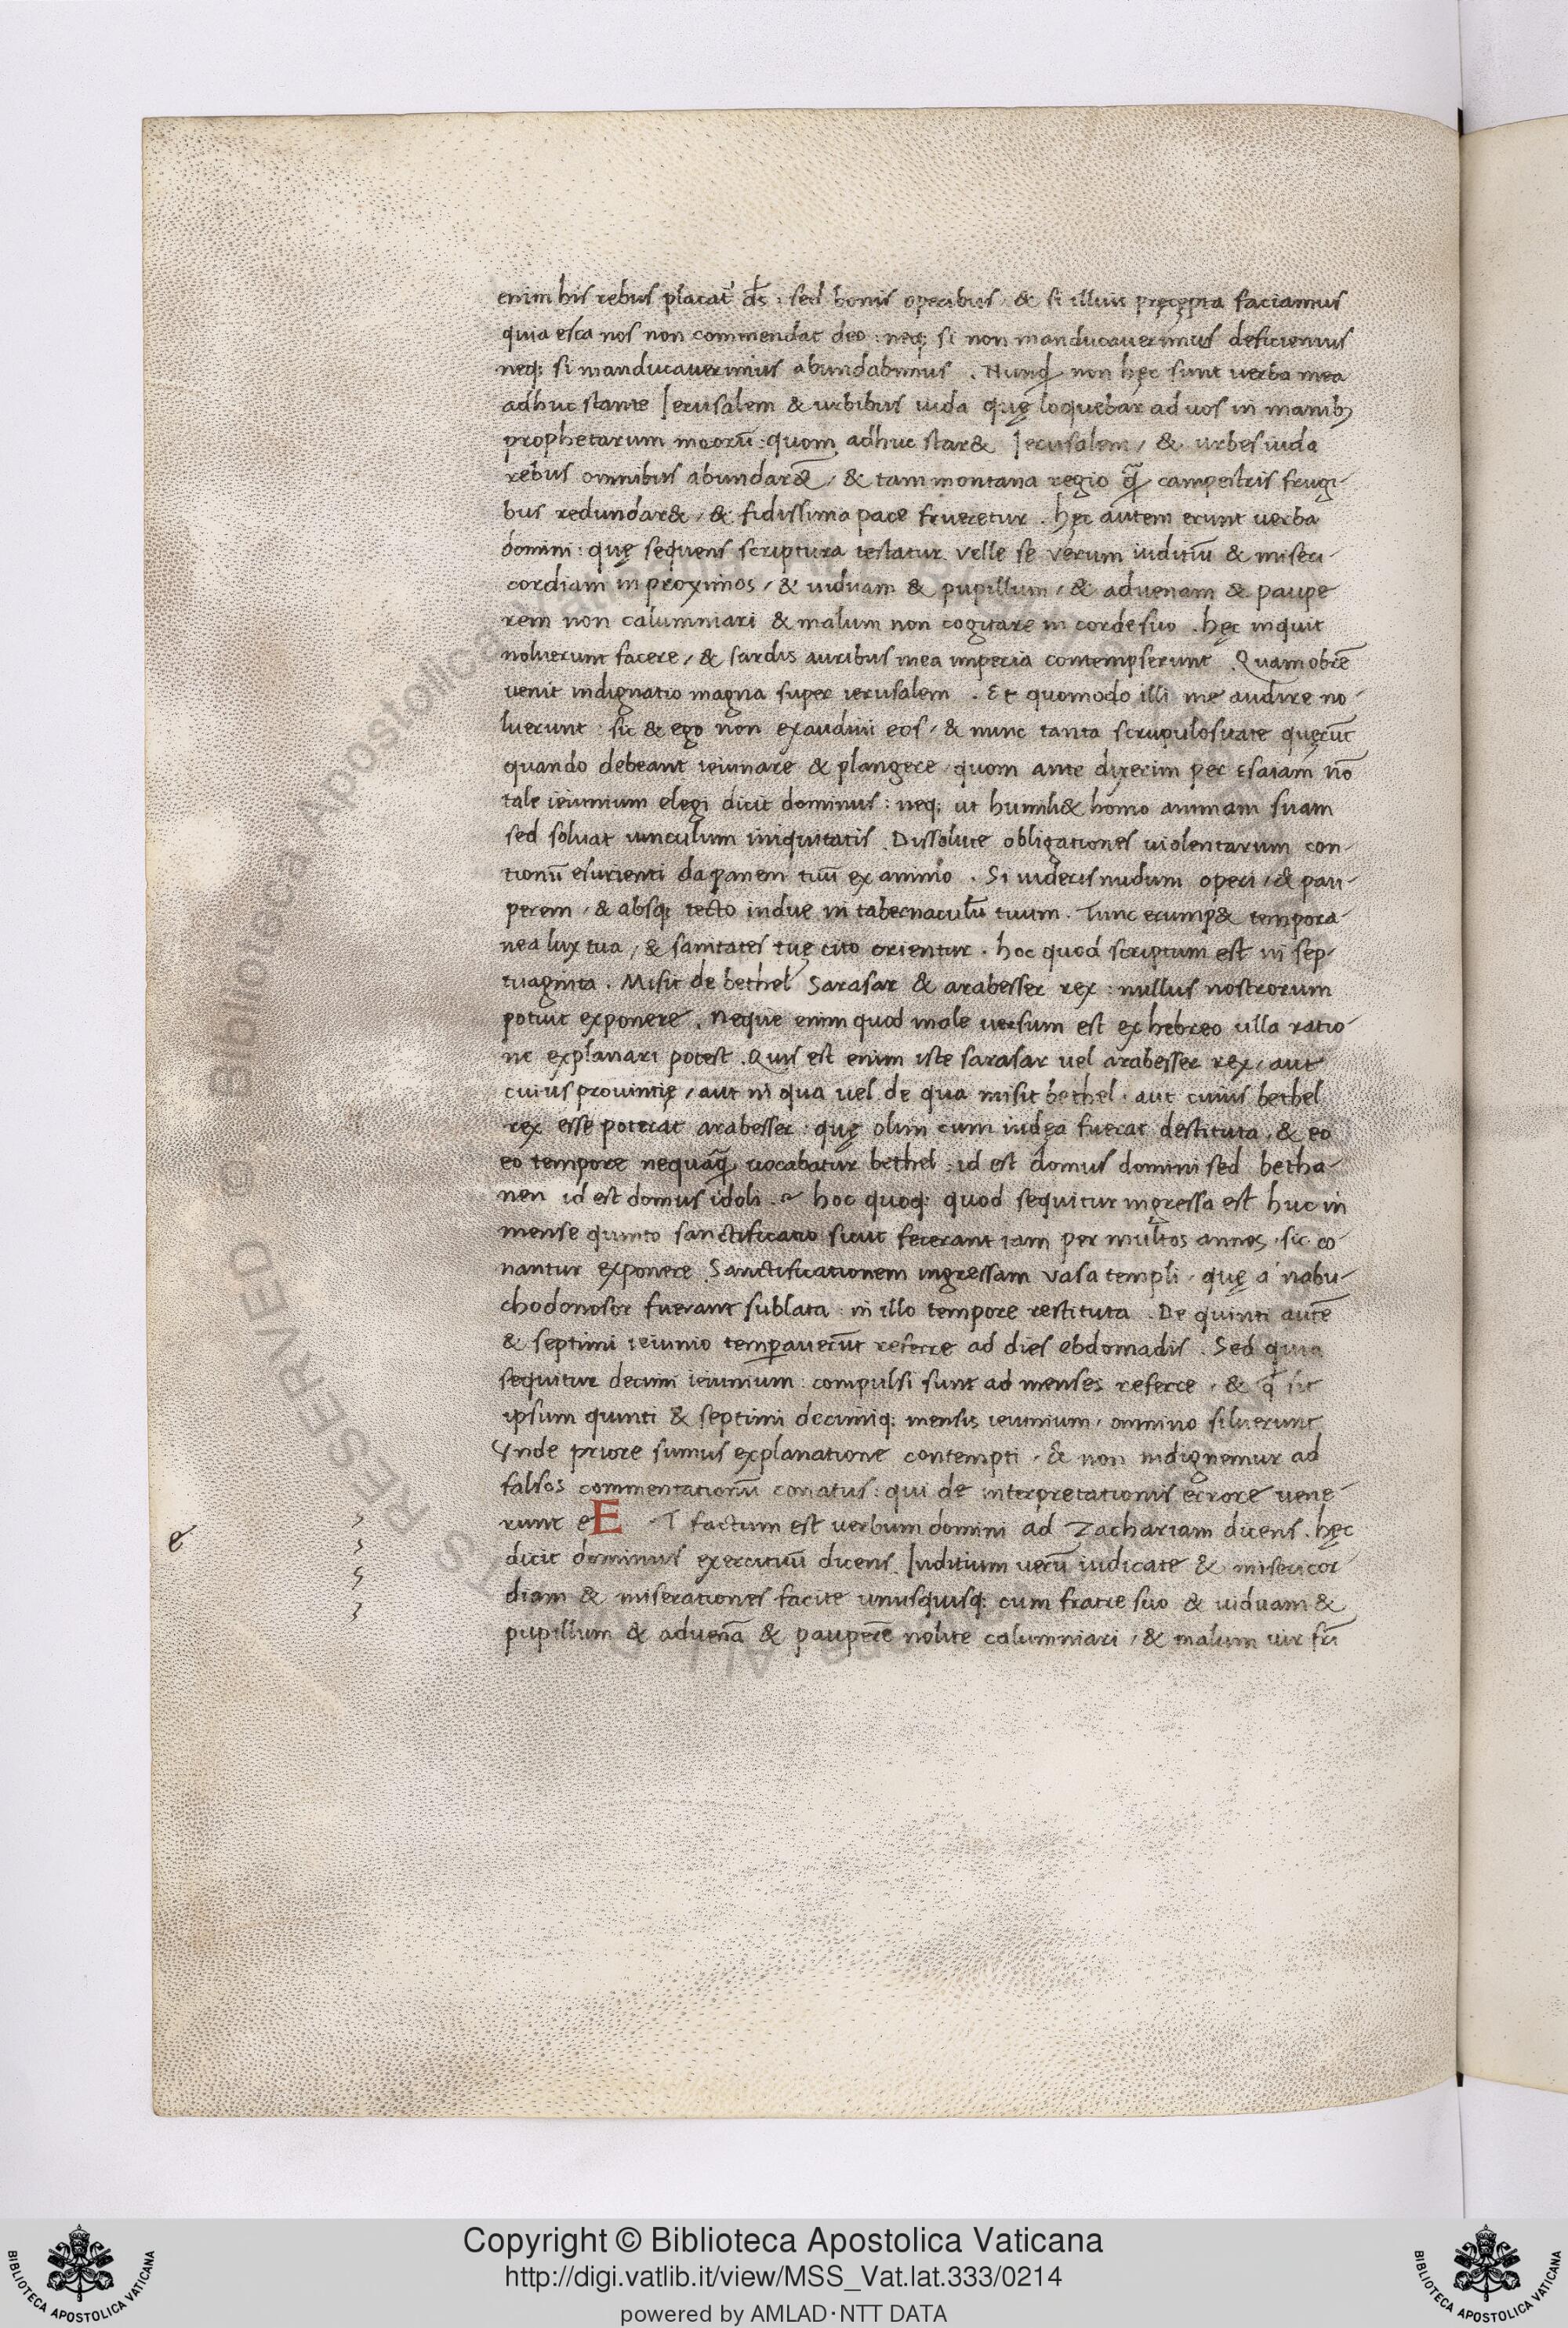 enim his rebus placat᷑ ds̄ : sed bonis operibus / & si illius pręcepta faciamus
quia esca nos non commendat deo : neq; si non manducauerimus deficiemus
neq; si manducauerimus abundabimus . Nunq̄d non hęc sunt uerba mea
adhuc stante Ierusalem & urbibus iuda quę loquebar ad uos in manib;
prophetarum meorū : quom adhuc star& Ierusalem / & urbes iuda
rebus omnibus abundar&̄ / & tam montana regio q̄ campestris frugi-
bus redundar& / & fidissima pace frueretur . hęc autem erunt uerba
domini : quę sequens scriptura testatur velle se verum iuditiū & miseri-
cordiam in proximos / & uiduam & pupillum / & aduenam & paupe
rem non calumniari & malum non cogitare in corde suo . hęc inquit
noluerunt facere / & surdis auribus mea imperia contempserunt . Quam obrē
uenit indignatio magna super ierusalem . Et quomodo illi me audire no-
luerunt : sic & ego non exaudiui eos / & nunc tanta scrupulositate querūt
quando debeant ieiunare & plangere / quom ante dixerim per esaiam nō
tale ieiunium elegi dicit dominus : neq; ut humili& homo animam suam
sed soluat uinculum iniquitatis . Dissolute obligationes uiolentarum con-
tionū esurienti da panem tuū ex animo . Si uideris nudum operi / & pau-
perem / & absq; tecto indue in tabernaculū tuum . Tunc erump& tempora-
nea lux tua / & sanitates tuę cito orientur . hoc quod scriptum est in sep-
tuaginta . Misit de bethel Sarasar & arabesser rex : nullus nostrorum
potuit exponere . Neque enim quod male uersum est ex hebreo ulla ratio-
ne explanari potest . Quis est enim iste sarasar uel arabesser rex / aut
cuius prouintię / aut in qua uel de qua misit bethel . aut cuius bethel
rex esse poterat arabesser : quę olim cum iudęa fuerat destituta . & eo
eo tempore nequaq̄ uocabatur bethel : id est domus domini sed betha-
uen id est domus idoli . ~ hoc quoq; quod sequitur ingressa est huc in
mense quinto sanctificatio sicut fecerant iam per multos annos . sic co
nantur exponere Sanctificationem ingressam vasa templi . quę a nabu-
chodonosor fuerant sublata : in illo tempore restituta . De quinti autē
& septimi ieiunio temperauerūt referre ad dies ebdomadis . Sed quia
sequitur decimi ieiunium : compulsi sunt ad menses referre . & q̄d sit
ipsum quinti & septimi decimiq; mensis ieiunium / omnino siluerunt
Vnde priore sumus explanatione contempti . & non indignemur ad
falsos commentationū conatus : qui de interpretationis errore uene-
runt eE T factum est uerbum domini ad Zachariam dicens . hęc
dicit dominus exercituū dicens . Iuditium uerū iudicate & misericor
diam & miserationes facite unusquisq; cum fratre suo & uiduam &
pupillum & aduenā & pauperē nolite calumniari / & malum uir fri̅
e
Copyright © Biblioteca Apostolica Vaticana
http://digi.vatlib.it/view/MSS_Vat.lat.333/0214
powered by AMLAD·NTT DATA
BIBLIOTECA APOSTOLICA VATICANA
BIBLIOTECA APOSTOLICA VATICANA